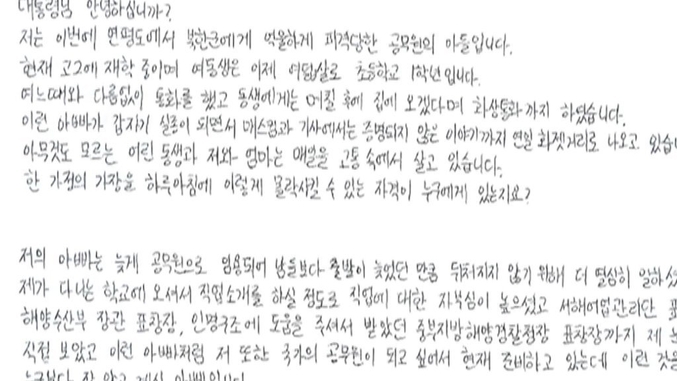 대통령님 안녕하십니까?
저는 이번에 연평도에서 북한군에게 억울하게 피격당한 공무원의 아들입니다.
현재 고2에 재학 중이며 여동생은 이제 여덟살로 초등학교 1학년입니다.
여느때와 다름없이 통화를 했고 동생에게는 며칠 후에 집에 오겠다며 화상통화까지 하였습니다.
이런 아빠가 갑자기 실종이 되면서 매스컴과 기사에서는 증명되지 않은 이야기까지 연일 화젯거리로 나오고 있습니
아무것도 모르는 어린 동생과 저와 엄마는 매일을 고통 속에서 살고 있습니다.
한 가정의 가장을 하루아침에 이렇게 몰락시킬 수 있는 자격이 누구에게 있는지요?
저의 아빠는 늦게 공무원으로 임용되어 남들보다 출발이 늦었던 만큼 뒤처지지 않기 위해 더 열심히 일하셨
제가 다니는 학교에 오셔서 직업소개를 하실 정도로 직업에 대한 자부심이 높으셨고 서해어업관리단 표
해양수산부 장관 표창장, 인명구조에 도움을 주셔서 받았던 중부지방해양경찰청장 표창장까지 제 눈
직접 보았고 이런 아빠처럼 저 또한 국가의 공무원이 되고 싶어서 현재 준비하고 있는데 이런 것을
누구보다 잘 알고 계신 아빠입니다